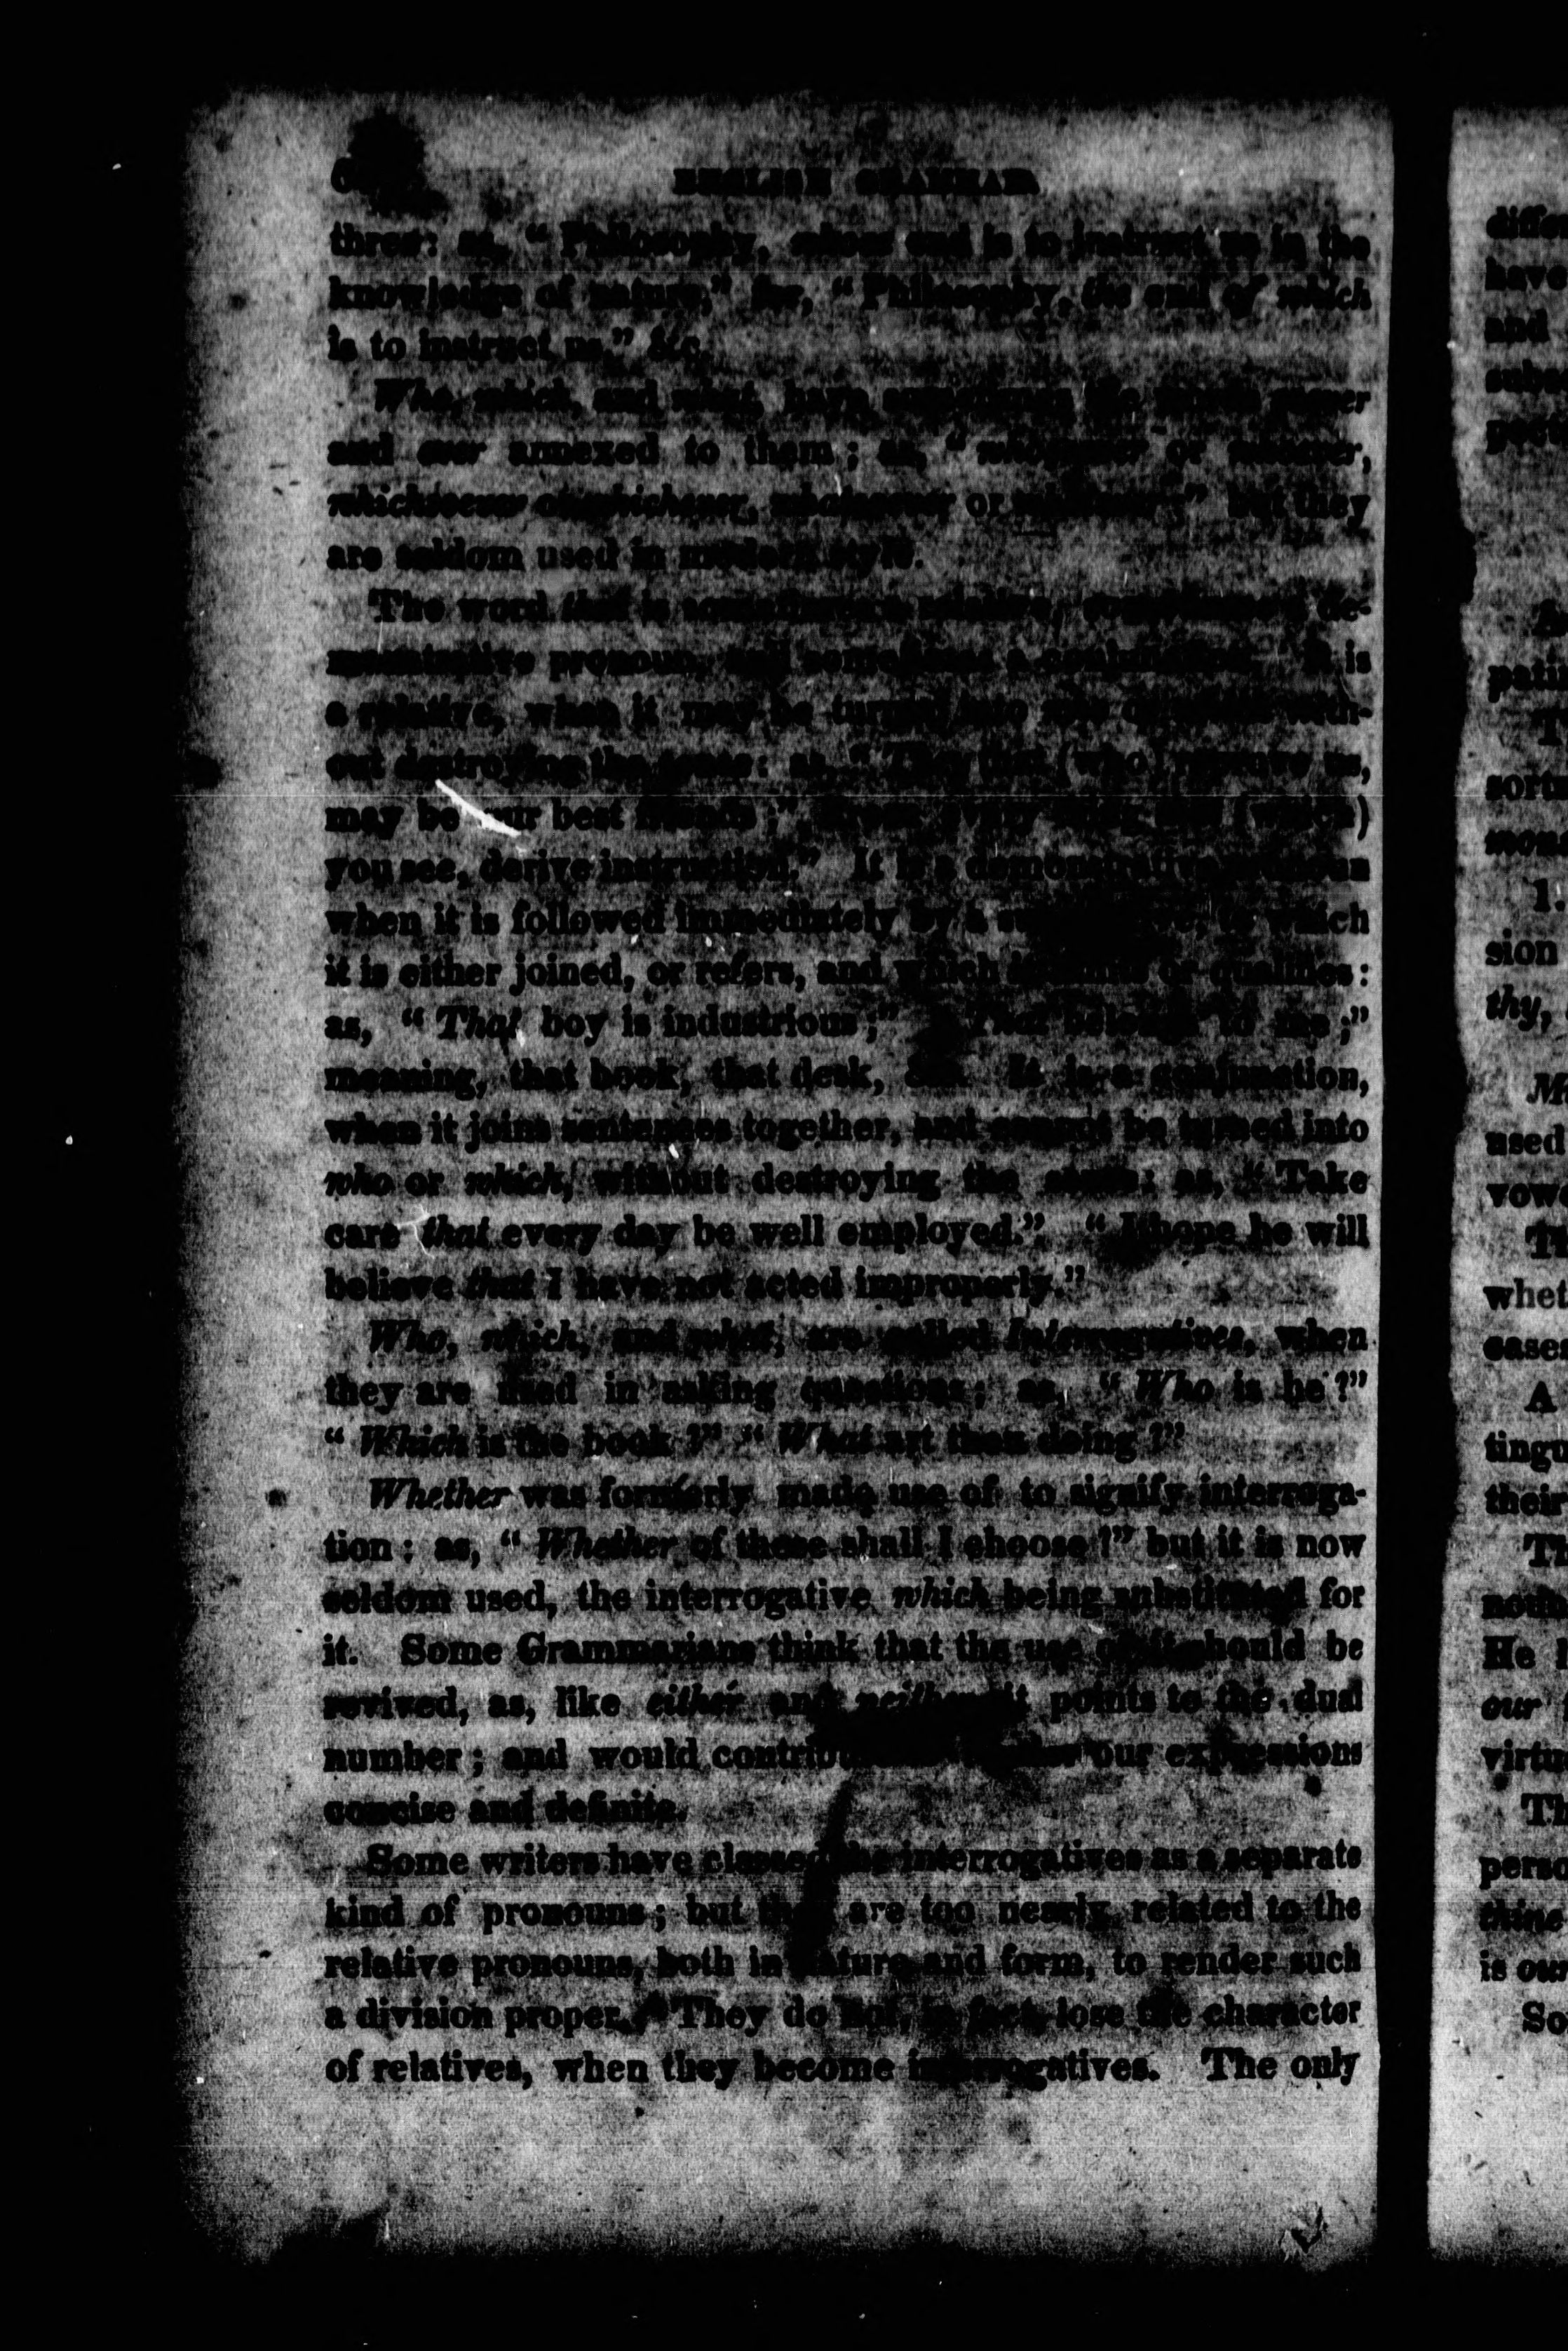 ENGLISH GRAMMAR
three: as, "Philosophy, whose end is to instruct us in the
knowledge of nature," for, "Philosophy, the end of which
is to instruct us," &c.
Who, which, and what, have sometimes the words soever
and ever annexed to them; as, "whosoever or whoever,
whichsoever or whichever, whatsoever or whatever;" but they
are seldom used in modern style.
The word that is sometimes a relative, sometimes a de-
monstrative pronoun, and sometimes a conjunction. It is
a relative, when it may be turned into who or which with-
out destroying the sense: as, "They that (who) reprove us,
may be our best friends;" "From every thing that (which)
you see, derive instruction." It is a demonstrative pronoun
when it is followed immediately by a substantive, to which
it is either joined, or refers, and which it limits or qualifies:
as, "That boy is industrious;" "That belongs to me;"
meaning, that book, that desk, &c. It is a conjunction,
when it joins sentences together, and cannot be turned into
who or which, without destroying the sense: as, "Take
care that every day be well employed." "I hope he will
believe that I have not acted improperly."
Who, which, and what, are called Interrogatives, when
they are used in asking questions; as, "Who is he?"
"Which is the book?" "What art thou doing?"
Whether was formerly made use of to signify interroga-
tion: as, "Whether of these shall I choose?" but it is now
seldom used, the interrogative which being substituted for
it. Some Grammarians think that the use of it should be
revived, as, like either and neither, it points to the dual
number; and would contribute to render our expressions
concise and definite.
Some writers have classed the interrogatives as a separate
kind of pronouns; but they are too nearly related to the
relative pronouns, both in nature and form, to render such
a division proper. They do not, in fact, lose the character
of relatives, when they become interrogatives. The only
have
and
sion
thy,
used
T
whet
cases
A
their
Th
He
our
Th
is our
So